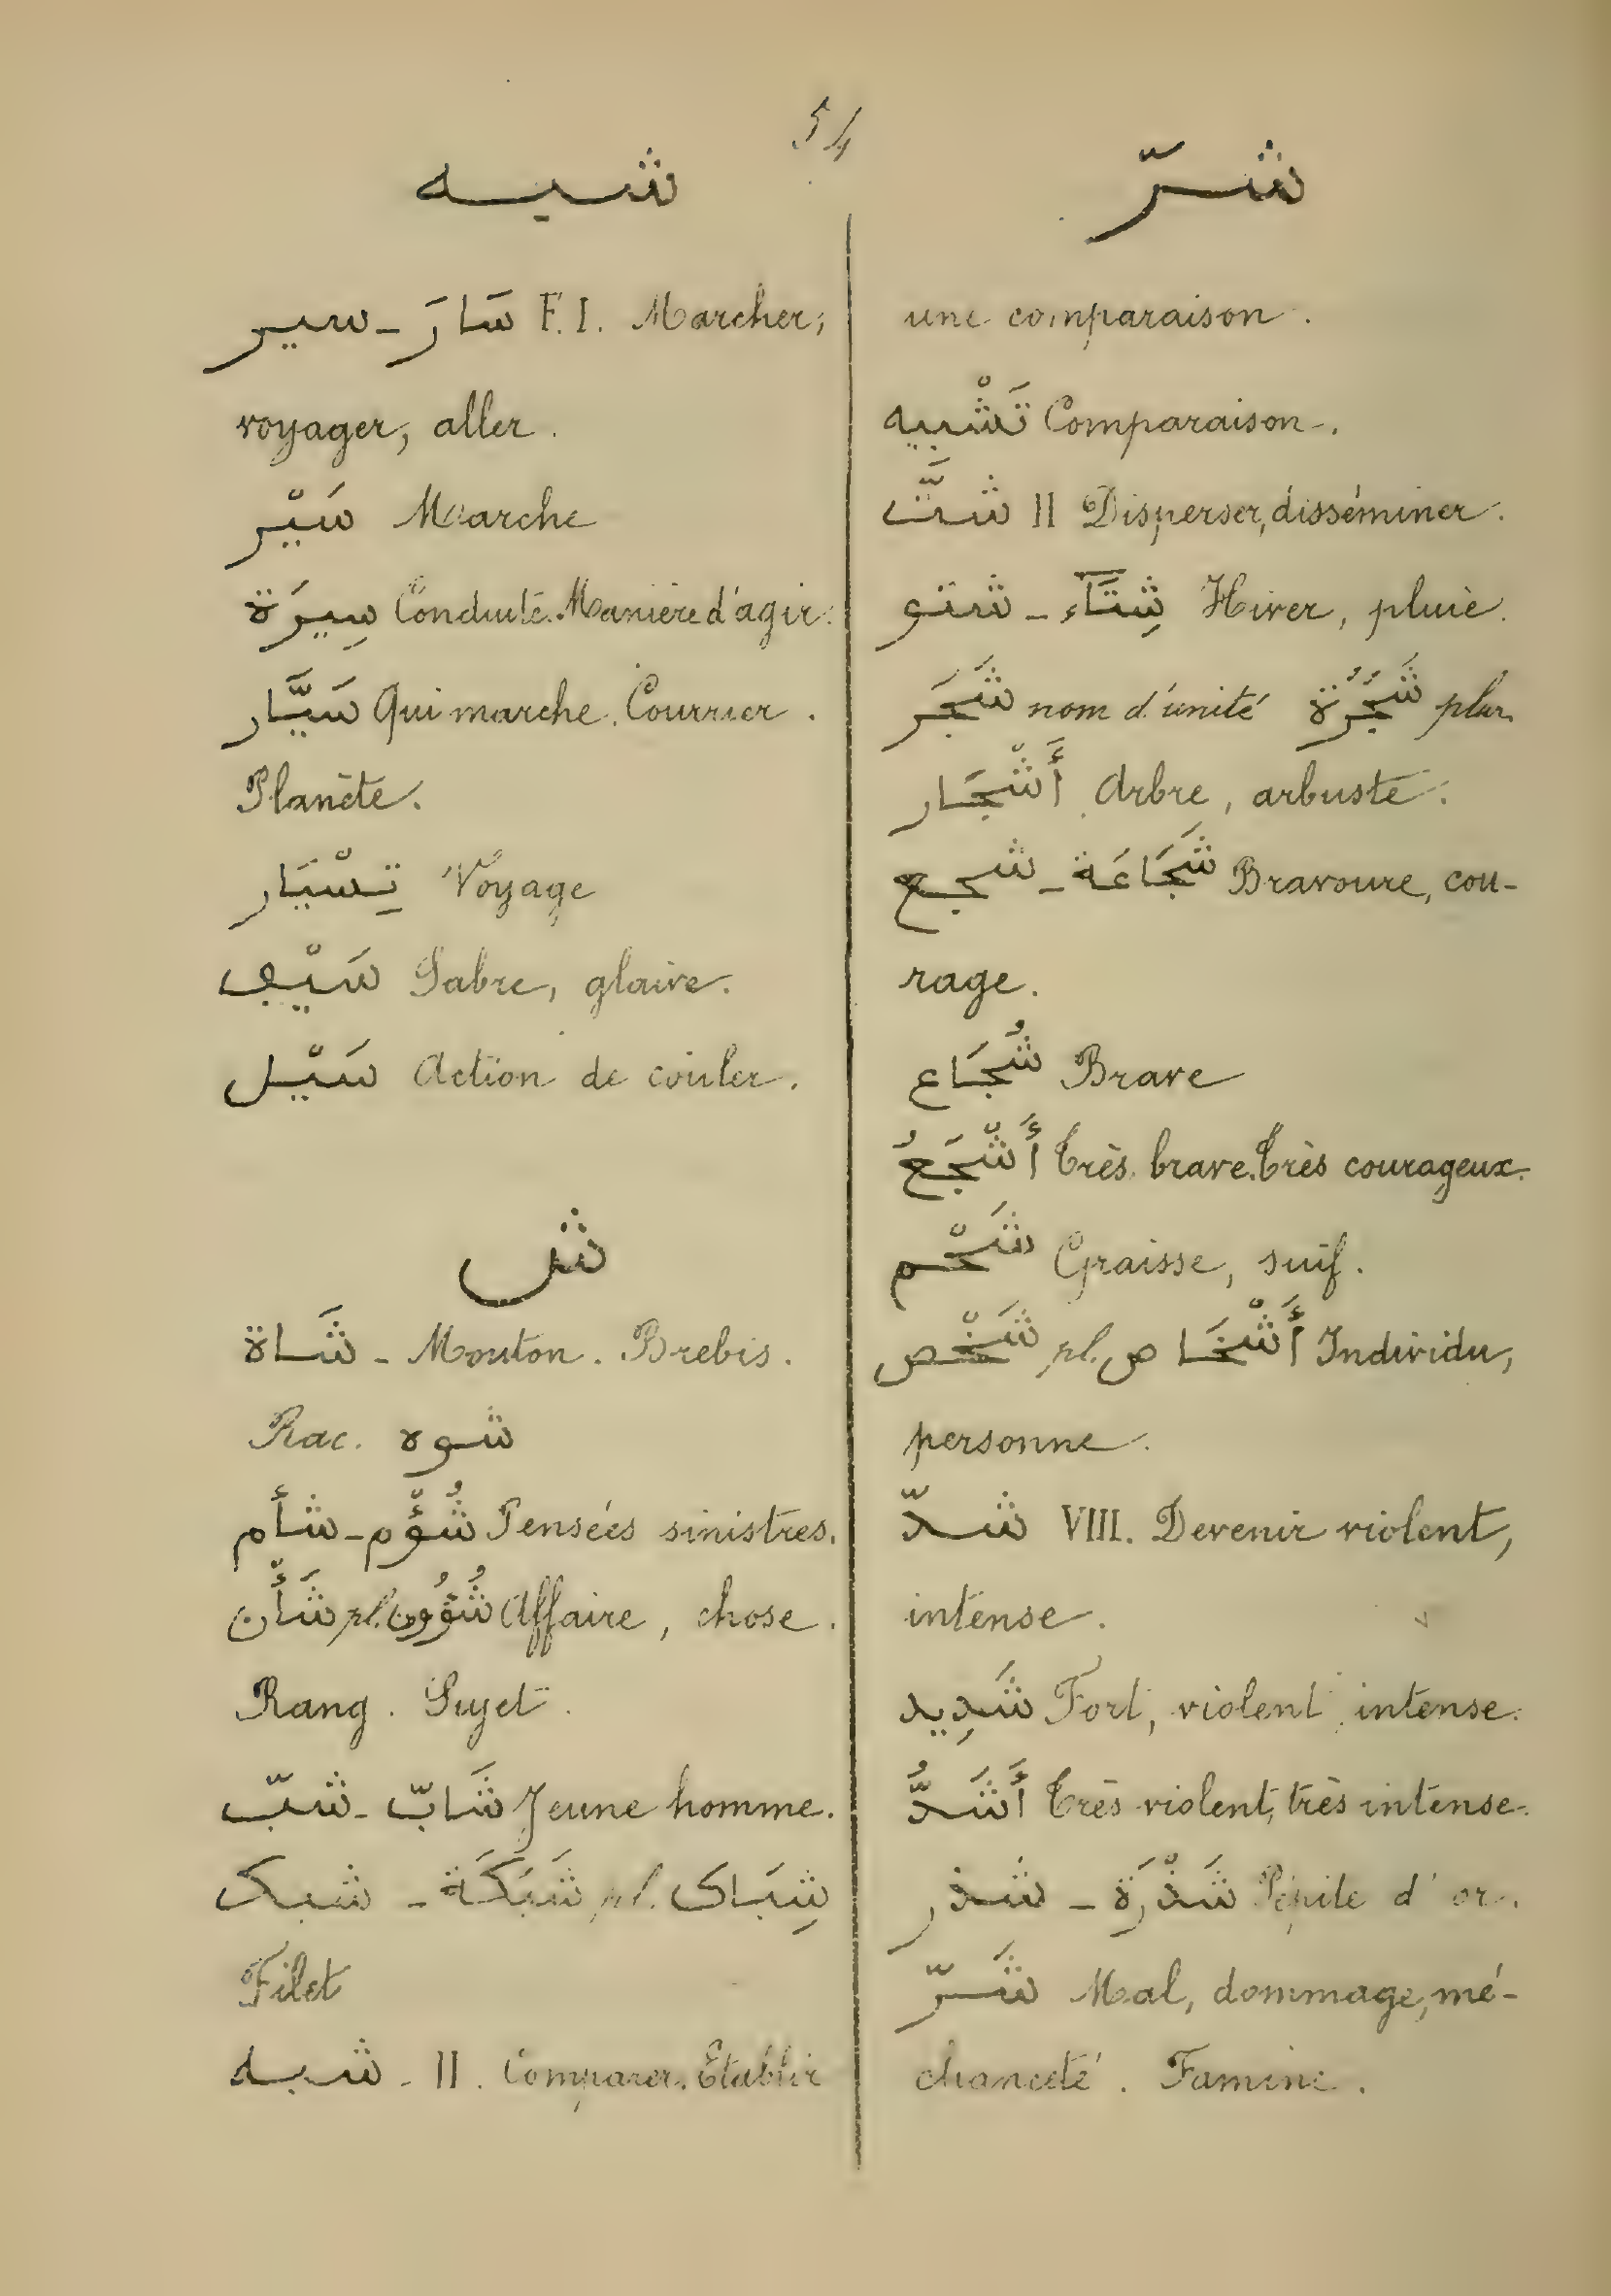 54
شبه
شرّ
سير - سَارَ F. I. Marcher,
voyager, aller.
سَيْر Marche
سِيرَة Conduite. Manière d'agir.
سَيَّار Qui marche. Courrier.
Planète.
تِسْيَار Voyage
سَيْف Sabre, glaive.
سَيْل Action de couler.
ش
شَاة - Mouton. Brebis.
Rac. شوه
شأم - شُؤْم Pensées sinistres.
شَأْن pl. شُؤُون Affaire, chose.
Rang. Sujet.
شبّ - شَابّ Jeune homme.
شبك - شَبَكَة pl. شِبَاك
Filet
شبه - II. Comparer. Etablir
une comparaison.
تَشْبيه Comparaison.
شتَّت II Disperser, disséminer.
شتو - شِتَآء Hiver, pluie.
شَجَر nom d'unité شَجَرَة plur.
أَشْجَار Arbre, arbuste.
شجع - شَجَاعَة Bravoure, cou-
rage.
شُجَاع Brave
أَشْجَعُ Très brave. Très courageux.
شَحْم Graisse, suif.
شَخْص pl. أَشْخَاص Individu,
personne.
شدّ VIII. Devenir violent,
intense.
شَدِيد Fort, violent, intense.
أَشَدُّ Très violent, très intense.
شذر - شَذْرَة Pépite d'or.
شَرّ Mal, dommage, mé-
chanceté. Famine.